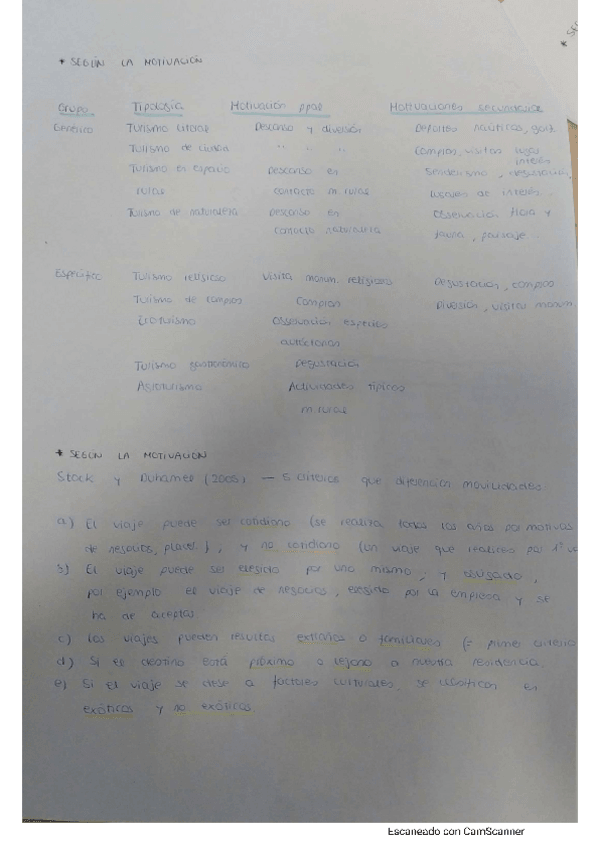 * SEGÚN LA MOTIVACIÓN
Grupo Tipología Motivación ppal Motivaciones secundarias
Genérico Turismo litoral Descanso y diversión Deportes náuticos, golf
Turismo de ciudad " " " Compras, visitas lugar
interés
Turismo en espacio descanso en Senderismo, degustación,
rural contacto m. rural lugares de interés.
Turismo de naturaleza descanso en Observación flora y
contacto naturaleza fauna, paisaje.
Específico Turismo religioso Visita monum. religioso Degustación, compras
Turismo de compras Compras Diversión, visitar monum
Ecoturismo Observación especies
autóctonas
Turismo gastronómico Degustación
Agroturismo Actividades típicas
m. rural
* SEGÚN LA MOTIVACIÓN
Stock y Duhamel (2005) — 5 criterios que diferencian movilidades.
a) El viaje puede ser cotidiano (se realiza todos los años por motivos
de negocios, placer), y no cotidiano (un viaje que realices por 1ª
b) El viaje puede ser elegido por uno mismo, y obligado,
por ejemplo el viaje de negocios, elegido por la empresa y se
ha de aceptar
c) Los viajes pueden resultar extraños o familiares (= primer criterio
d) Si el destino está próximo o lejano a nuestra residencia.
e) Si el viaje se debe a factores culturales, se clasifican en
exóticos y no exóticos.
Escaneado con CamScanner